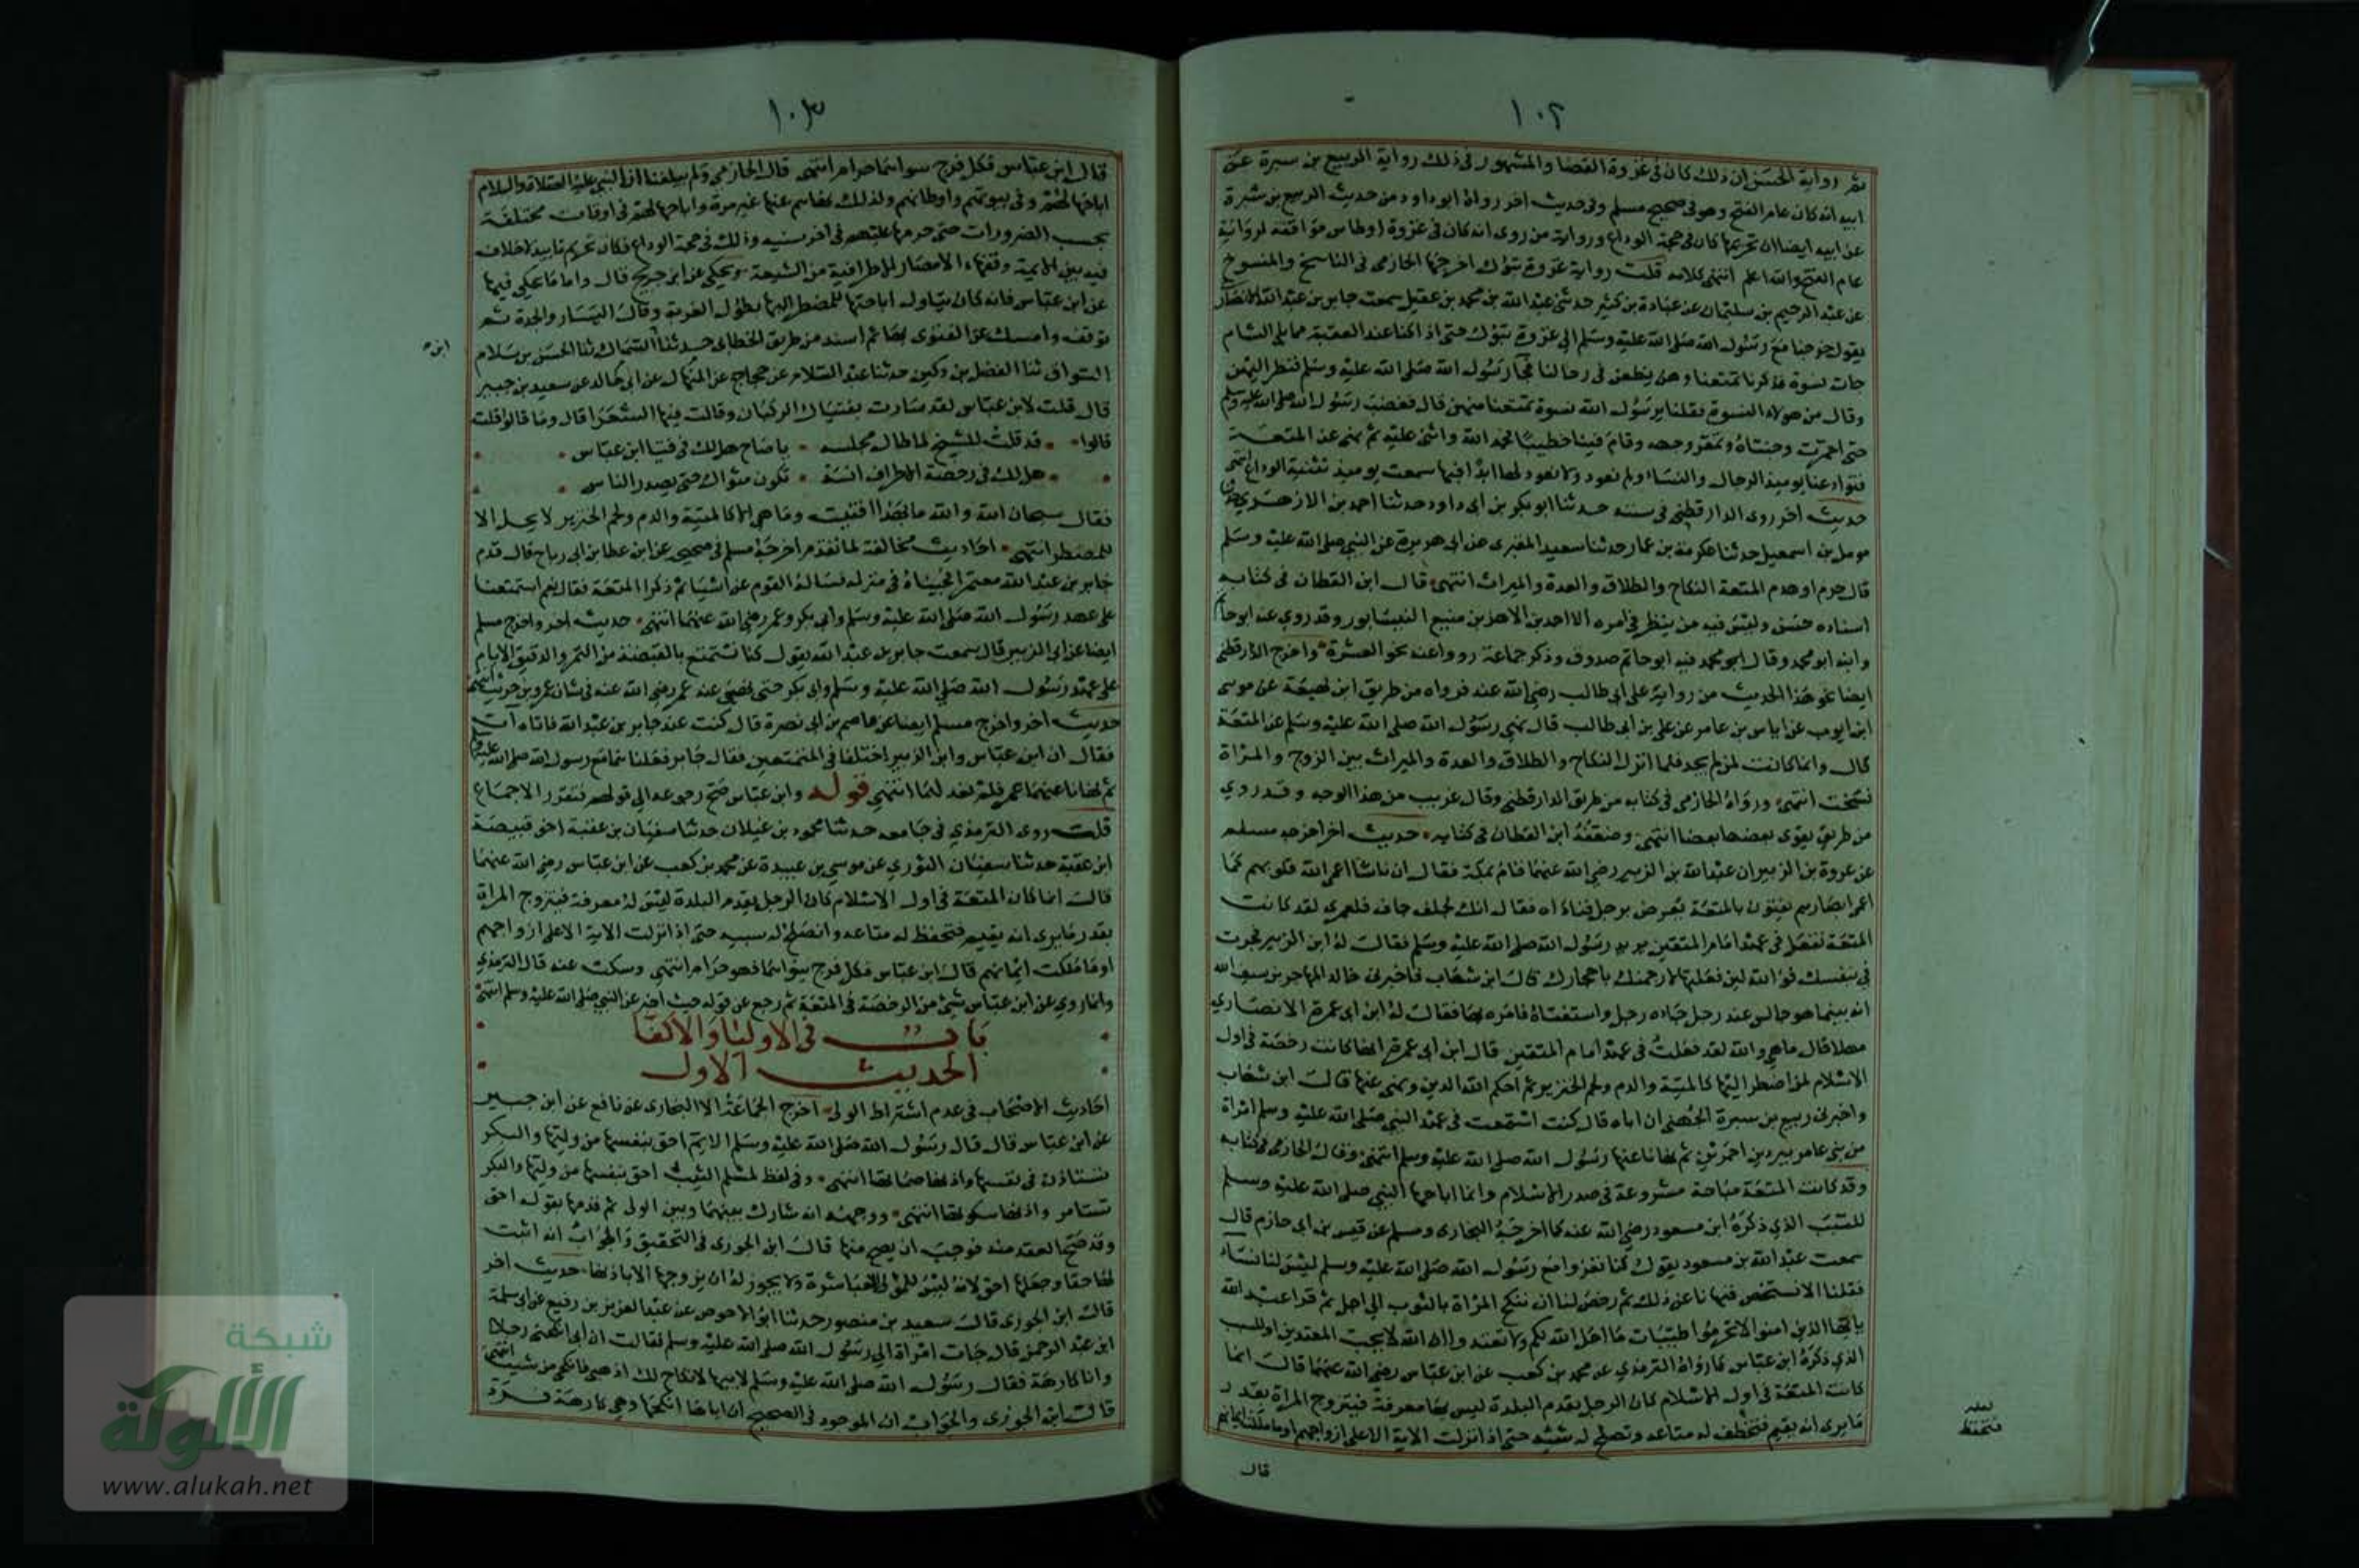 ١٠٢
ثم رواية الحسن ان ذلك كان في غزوة القضا والمشهور في ذلك رواية الربيع بن سبرة عن
ابيه انه كان عام الفتح وهو في صحيح مسلم وفي حديث اخر رواه ابو داود من حديث الربيع بن سبرة
عن ابيه ايضا ان تحريمها كان في حجة الوداع ورواية من روى انه كان في غزوة اوطاس موافقة لرواية
عام الفتح والله اعلم انتهى كلامه قلت رواية غزوة تبوك اخرجها الحازمي في الناسخ والمنسوخ
عن عبد الرحيم بن سليمان عن عبادة بن كثير حدثني عبد الله بن محمد بن عقيل سمعت جابر بن عبد الله الانصاري
يقول خرجنا مع رسول الله صلى الله عليه وسلم الى غزوة تبوك حتى اذا كنا عند العقبة مما يلي الشام
جات نسوة فذكرنا تمتعنا وهن يطفن في رحالنا فجآ رسول الله صلى الله عليه وسلم فنظر اليهن
وقال من هولاء النسوة فقلنا يرسول الله نسوة تمتعنا منهن قال فغضب رسول الله صلى الله عليه وسلم
حتى احمرت وجنتاه وتمعر وجهه وقام فينا خطيبا فحمد الله واثنى عليه ثم نهى عن المتعة
فتوادعنا يوميذ الرجال والنساء ولم نعود ولا نعود لها ابدا فبها سميت يوميذ ثنية الوداع انتهى
حديث اخر روى الدارقطني في سننه حدثنا ابو بكر بن ابي داود حدثنا احمد بن الازهر حدثنا
مومل بن اسمعيل حدثنا عكرمة بن عمار حدثنا سعيد المقبري عن ابي هريرة عن النبي صلى الله عليه وسلم
قال حرم او هدم المتعة النكاح والطلاق والعدة والميراث انتهى قال ابن القطان في كتابه
اسناده حسن وليس فيه من ينظر في امره الا احمد بن الازهر بن منيع النيسابور وقد روي عنه ابو حاتم
وابنه ابو محمد وقال ابو محمد فيه ابو حاتم صدوق وذكر جماعة رووا عنه نحو العشرة واخرج الدارقطني
ايضا نحو هذا الحديث من رواية علي ابي طالب رضي الله عنه فرواه من طريق ابن لهيعة عن موسى
ابن ايوب عن اياس بن عامر عن علي بن ابي طالب قال نهى رسول الله صلى الله عليه وسلم عن المتعة
قال وانما كانت لمن لم يجد فلما انزل النكاح والطلاق والعدة والميراث بين الزوج والمراة
نسخت انتهى ورواه الحازمي في كتابه من طريق الدارقطني وقال غريب من هذا الوجه وقد روي
من طريق يقوى بعضها بعضا انتهى وضعفه ابن القطان في كتابه حديث اخر اخرجه مسلم
عن عروة بن الزبير ان عبد الله بن الزبير رضي الله عنهما قام بمكة فقال ان ناسا اعمى الله قلوبهم كما
اعمى ابصارهم يفتون بالمتعة يعرض برجل فناداه فقال انك لجلف جاف فلعمري لقد كانت
المتعة تفعل في عهد امام المتقين يريد رسول الله صلى الله عليه وسلم فقال له ابن الزبير فجرب
في بنفسك فو الله لين فعلتها لارجمنك باحجارك قال ابن شهاب فاخبرني خالد المهاجر بن سيف الله
انه بينما هو جالس عند رجل جاءه رجل واستفتاه فامره بها فقال له ابن ابي عمرة الانصاري
مهلا قال ما هي والله لقد فعلت في عهد امام المتقين قال ابن ابي عمرة انها كانت رخصة في اول
الاسلام لمن اضطر اليها كالميتة والدم ولحم الخنزير ثم احكم الله الدين ونهى عنها قال ابن شهاب
واخبرني ربيع بن سبرة الجهني ان اباه قال كنت استمتعت في عهد النبي صلى الله عليه وسلم امراة
من بني عامر ببردين احمرين ثم نهانا عنها رسول الله صلى الله عليه وسلم انتهى وقال الحازمي في كتابه
وقد كانت المتعة مباحة مشروعة في صدر الاسلام وانما اباحها النبي صلى الله عليه وسلم
للسبب الذي ذكره ابن مسعود رضي الله عنه كما اخرجه البخاري ومسلم عن قيس بن ابي حازم قال
سمعت عبد الله بن مسعود يقول كنا نغزوا مع رسول الله صلى الله عليه وسلم ليس لنا نساء
فقلنا الا نستخص فنهانا عن ذلك ثم رخص لنا ان ننكح المراة بالثوب الى اجل ثم قرا عبد الله
يايها الذين امنوا لا تحرموا طيبات ما احل الله لكم ولا تعتدوا ان الله لا يحب المعتدين او للسبب
الذي ذكره ابن عباس كما رواه الترمذي عن محمد بن كعب عن ابن عباس رضي الله عنهما قال انما
كانت المتعة في اول الاسلام كان الرجل يقدم البلدة ليس بها معرفة فيتزوج المراة بقدر
ما يرى انه يقيم فتحفظ له متاعه وتصلح له شيه حتى اذا نزلت الاية الا على ازواجهم او ما ملكت ايمانهم
قال
لعله
فتحفظ
١٠٣
قال ابن عباس فكل فرج سواهما حرام انتهى قال الحازمي ولم يبلغنا ان النبي عليه الصلاة والسلام
اباحها لهم وفي بيوتهم واوطانهم ولذلك نهاهم عنها غير مرة واباحها لهم في اوقات مختلفة
بحسب الضرورات حتى حرمها عليهم في اخر سنيه وذلك في حجة الوداع فكان تحريم تابيد لا خلاف
فيه بين الايمة وفقهاء الامصار الا طرافية من الشيعة ويحكي عن ابن جريج قال واما ما يحكى فيها
عن ابن عباس فانه كان يتاول اباحتها للمضطر اليها بطول الغربة وقلة اليسار والجدة ثم
توقف وامسك عن الفتوى بها ثم اسند من طريق الخطابي حدثنا السماك ثنا الحسن بن سلام
ابن
السواق ثنا الفضل بن دكين حدثنا عبد السلام عن حجاج عن المنهال عن ابي خالد عن سعيد بن جبير
قال قلت لابن عباس لقد سارت بفتياك الركبان وقالت فيها الشعرا قال وما قالوا قلت
قالوا قد قلت للشيخ لما طال مجلسه يا صاح هل لك في فتيا ابن عباس
هل لك في رخصة الاطراف انسة تكون مثواك حتى يصدر الناس
فقال سبحان الله والله ما بهذا افتيت وما هي الا كالميتة والدم ولحم الخنزير لا يحل الا
للمضطر انتهى احاديث مخالفة لما تقدم اخرجه مسلم في صحيحه عن ابن عطا بن ابي رباح قال قدم
جابر بن عبد الله معتمرا فجيناه في منزله فساله القوم عن اشيا ثم ذكروا المتعة فقال نعم استمتعنا
على عهد رسول الله صلى الله عليه وسلم وابي بكر وعمر رضي الله عنهما انتهى حديث اخر واخرج مسلم
ايضا عن ابي الزبير قال سمعت جابر بن عبد الله يقول كنا نستمتع بالقبضة من التمر والدقيق الايام
على عهد رسول الله صلى الله عليه وسلم وابي بكر حتى نهى عنه عمر رضي الله عنه في شان عمرو بن حريث انتهى
حديث اخر واخرج مسلم ايضا عن عاصم بن ابي نصرة قال كنت عند جابر بن عبد الله فاتاه آت
فقال ان ابن عباس وابن الزبير اختلفا في المتعتين فقال جابر فعلناهما مع رسول الله صلى الله عليه وسلم
ثم نهانا عنهما عمر فلم نعد لهما انتهى قوله وابن عباس صح رجوعه الى قولهم فتقرر الاجماع
قلت روى الترمذي في جامعه حدثنا محمود بن غيلان حدثنا سفيان بن عقبة اخو قبيصة
ابن عقبة حدثنا سفيان الثوري عن موسى بن عبيدة عن محمد بن كعب عن ابن عباس رضي الله عنهما
قال انما كان المتعة في اول الاسلام كان الرجل يقدم البلدة ليس له معرفة فيتزوج المراة
بقدر ما يرى انه يقيم فتحفظ له متاعه وتصلح له شيه حتى اذا نزلت الاية الا على ازواجهم
او ما ملكت ايمانهم قال ابن عباس فكل فرج سواهما فهو حرام انتهى وسكت عنه قال الترمذي
وانما روي عن ابن عباس شيئ من الرخصة في المتعة ثم رجع عن قوله حيث اخبر عن النبي صلى الله عليه وسلم انتهى
باب في الاوليا والاكفا
الحديث الاول
احاديث الاصحاب في عدم اشتراط الولي اخرج الجماعة الا البخاري عن نافع عن ابن جبير
عن ابن عباس قال قال رسول الله صلى الله عليه وسلم الايم احق بنفسها من وليها والبكر
تستاذن في نفسها واذنها صماتها انتهى وفي لفظ لمسلم الثيب احق بنفسها من وليها والبكر
تستامر واذنها سكوتها انتهى ووجهه انه شارك بينهما وبين الولي ثم قدمها بقوله احق
وقد صح العقد منه فوجب ان يصح منها قال ابن الجوزي في التحقيق والجواب انه اثبت
لها حقا وجعلها احق لانه ليس للولي الا مباشرة ولا يجوز له ان يزوجها الا باذنها حديث اخر
قال ابن الجوزي قال سعيد بن منصور حدثنا ابو الاحوص عن عبد العزيز بن رفيع عن ابي سلمة
ابن عبد الرحمن قال جات امراة الى رسول الله صلى الله عليه وسلم فقالت ان ابي انكحني رجلا
وانا كارهة فقال رسول الله صلى الله عليه وسلم لابيها لا نكاح لك اذهبي فانكحي من شيت انتهى
قال ابن الجوزي والجواب ان الموجود في الصحيح ان اباها انكحها وهي كارهة فرد
شبكة
الألوكة
www.alukah.net